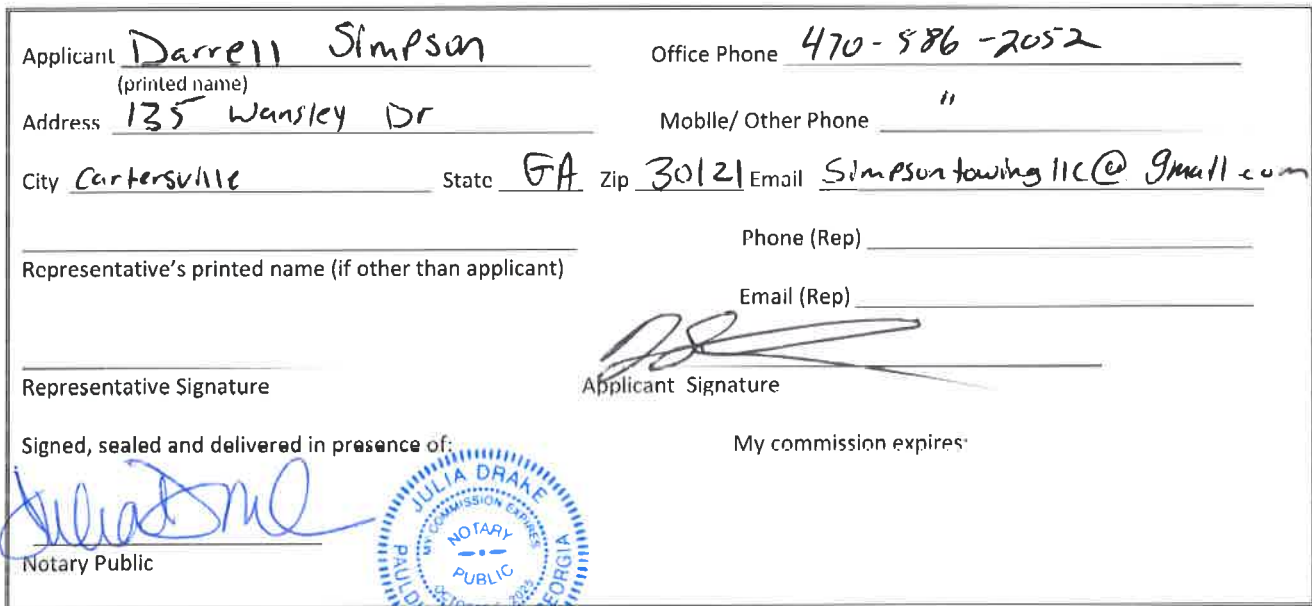 Applicant Darrell Simpson Office Phone 470-586-2052
(printed name)
Address 135 Wansley Dr Mobile/ Other Phone "
City Cartersville State GA Zip 30121 Email Simpsontowingllc@gmail.com
Phone (Rep)
Representative's printed name (if other than applicant)
Email (Rep)
Representative Signature Applicant Signature
Signed, sealed and delivered in presence of: My commission expires:
JULIA DRAKE
MY COMMISSION EXPIRES
NOTARY
PUBLIC
2025
GEORGIA
Notary Public